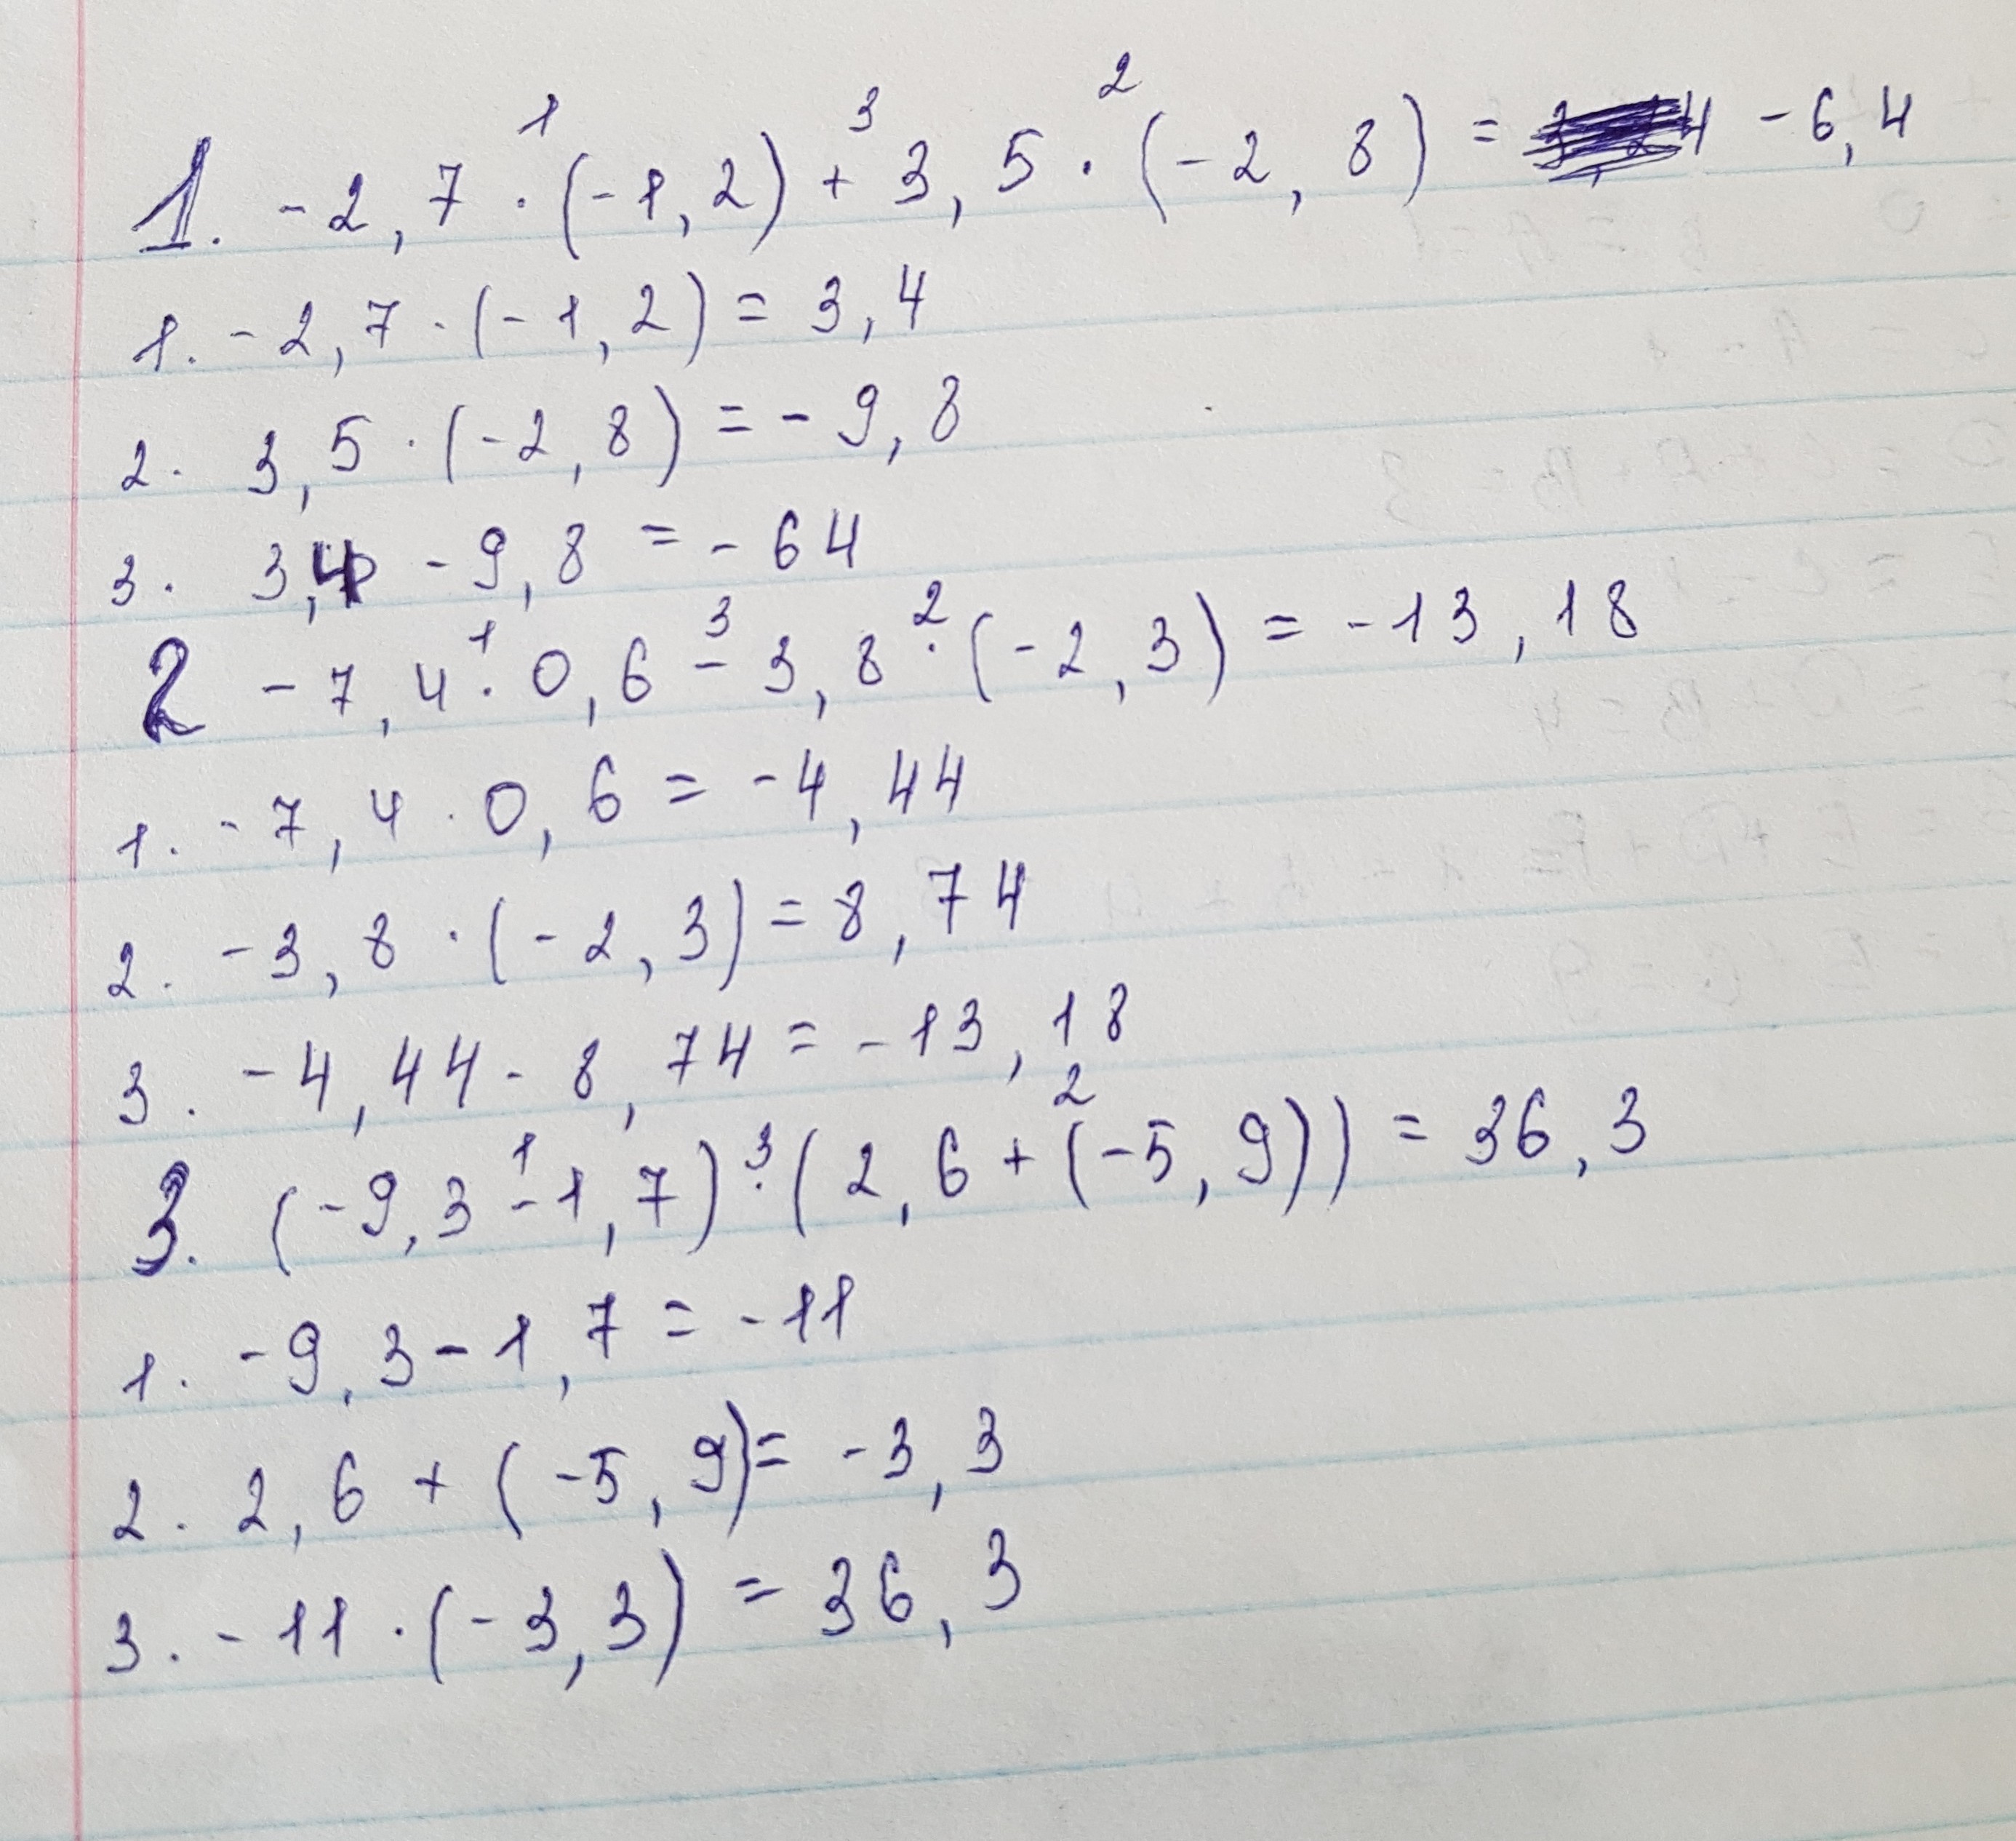 1. -2,7 · (-1,2) + 3,5 · (-2,8) = -6,4
1. -2,7 · (-1,2) = 3,4
2. 3,5 · (-2,8) = -9,8
3. 3,4 - 9,8 = -64
2 -7,4 · 0,6 - 3,8 · (-2,3) = -13,18
1. -7,4 · 0,6 = -4,44
2. -3,8 · (-2,3) = 8,74
3. -4,44 - 8,74 = -13,18
3. (-9,3 - 1,7) · (2,6 + (-5,9)) = 36,3
1. -9,3 - 1,7 = -11
2. 2,6 + (-5,9) = -3,3
3. -11 · (-3,3) = 36,3